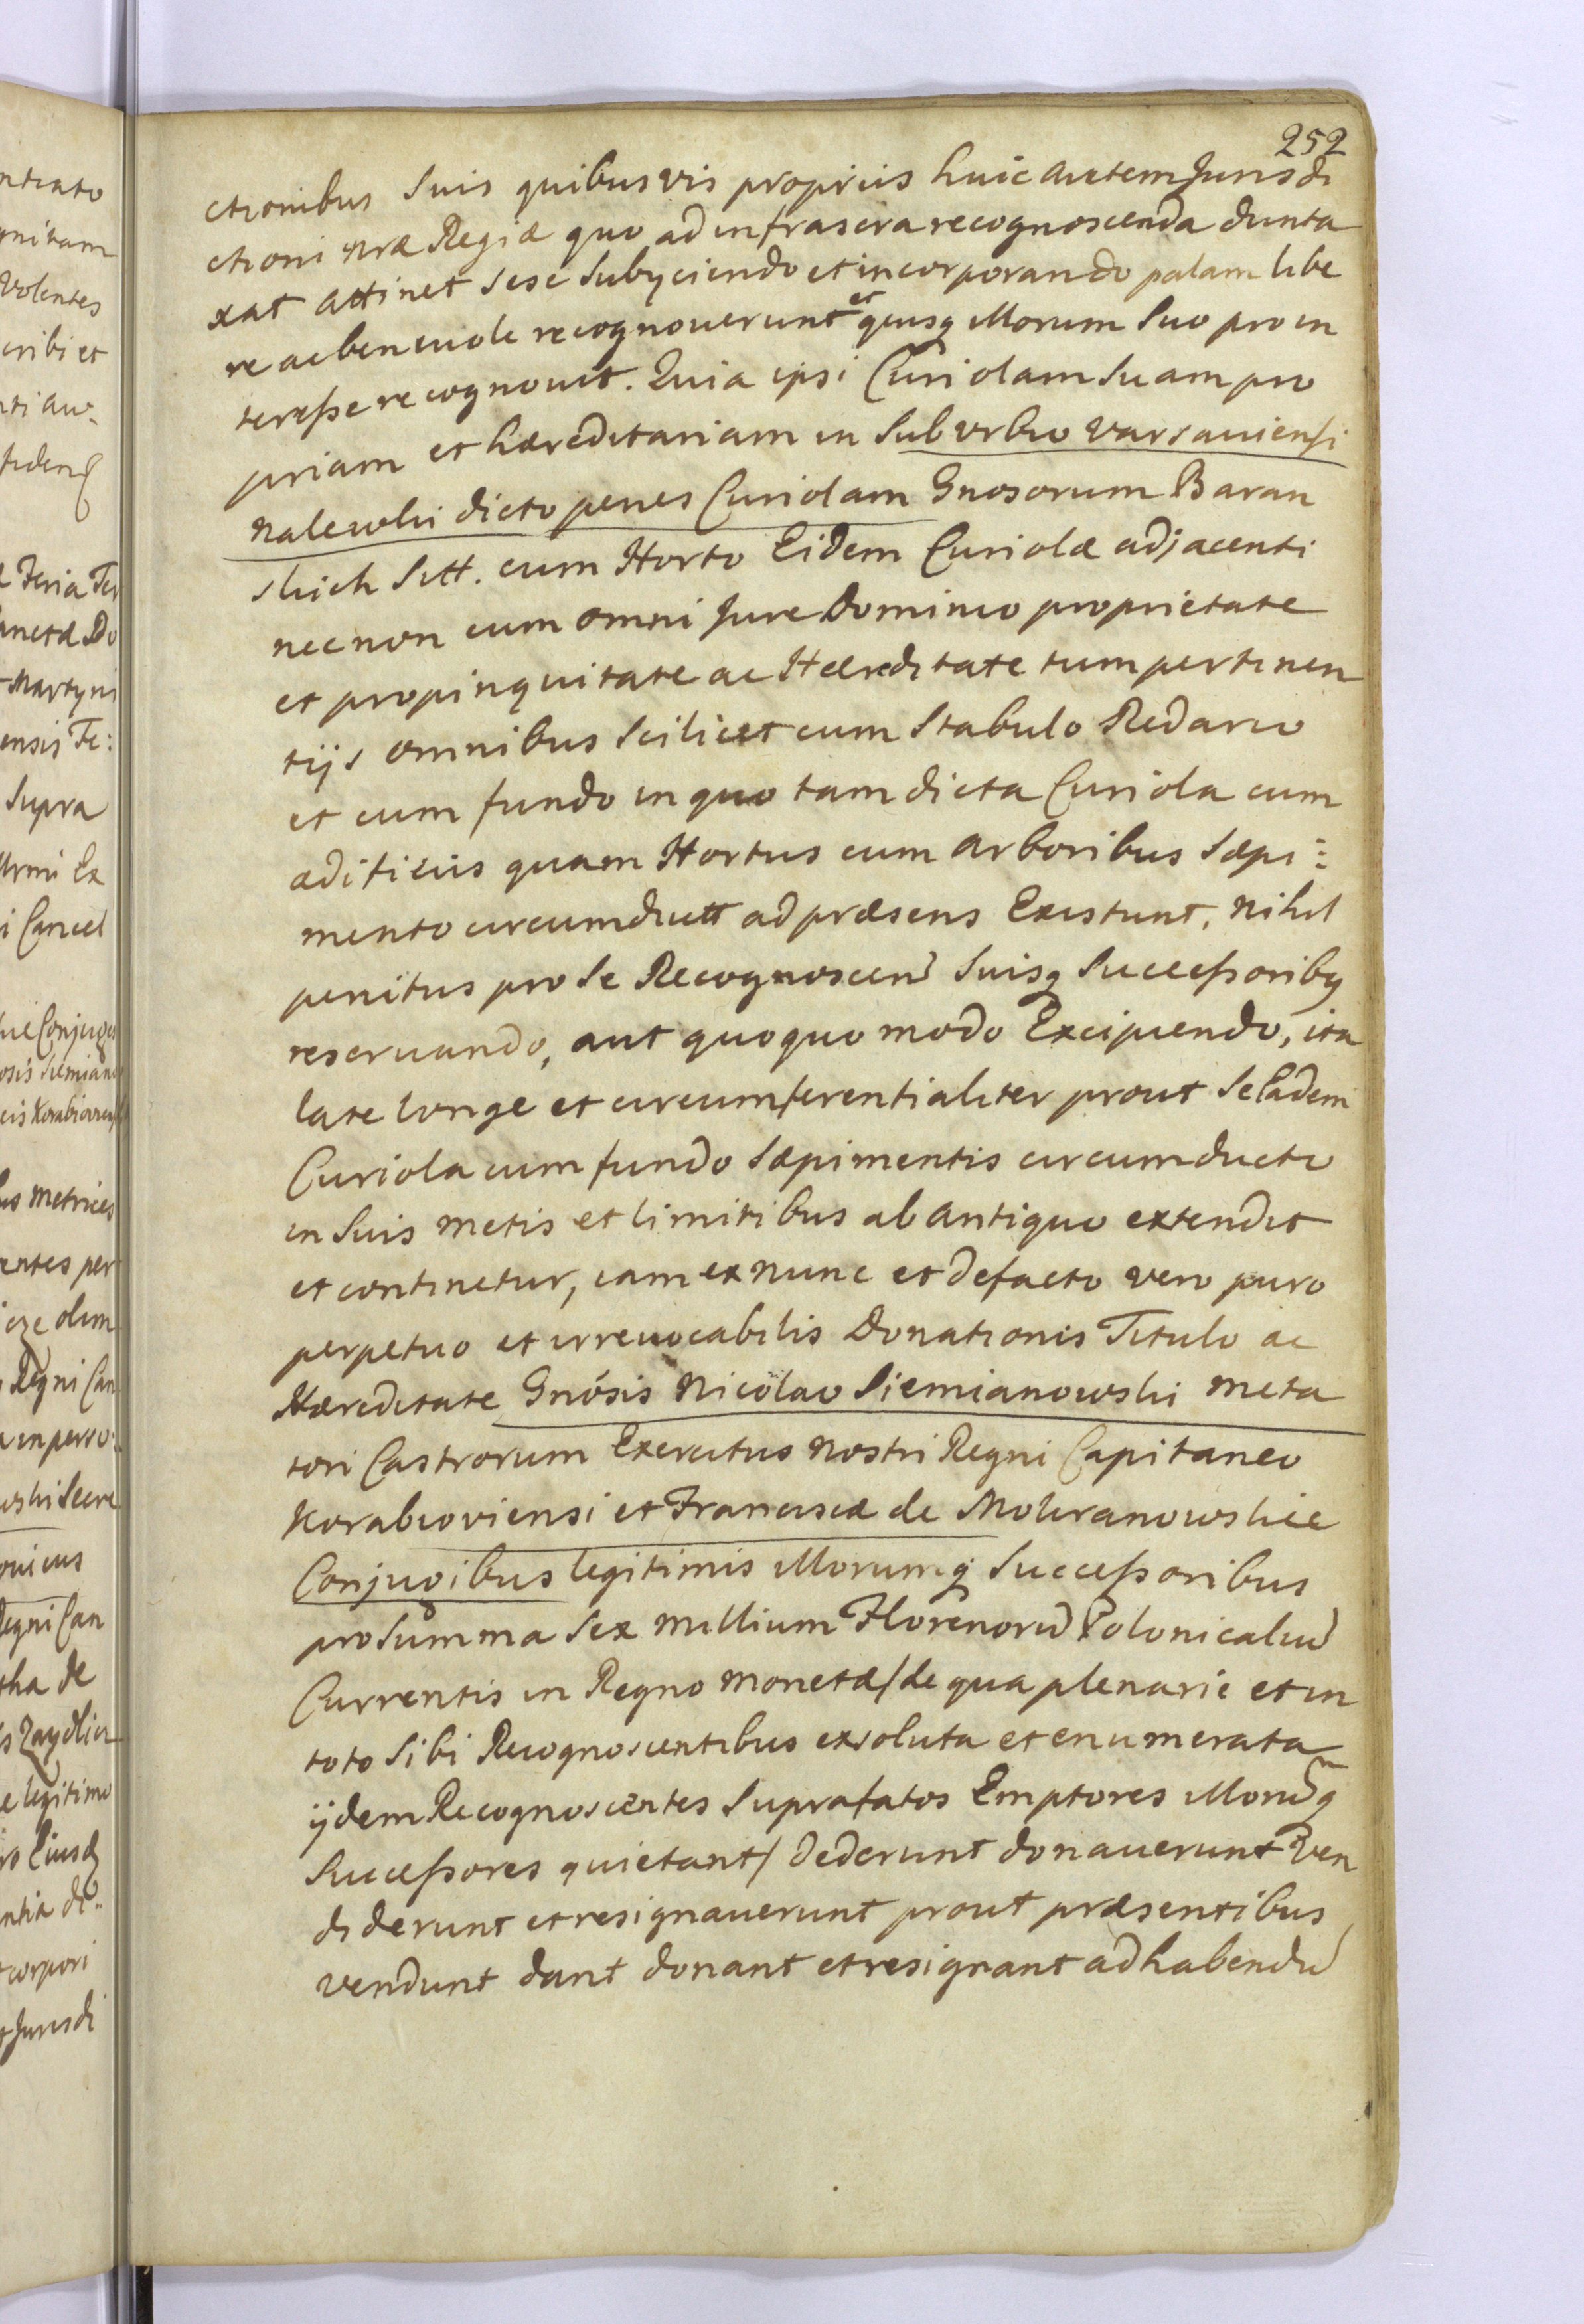 252
ctionibus suis quibusvis propriis huic autem Jurisdi
ctioni nræ Regiæ quo ad infrascra recognoscenda dunta
xat attinet sese subyciendo et incorporando palam libe
re ac beneuole recognouerunt et quisq illorum suo pro in
teresse recognouit. Quia ipsi Curiolam suam pro
priam et hæreditariam in suburbio varsauiensi
nalewki dicto penes Curiolam Gnosorum Baran
skich sitt. cum Horto Eidem Curiolæ adjacenti
nec non cum omni Jure Dominio proprietate
et propinquitate ac Hæreditate tum pertinen
tijs omnibus scilicet cum stabulo Redario
et cum fundo in quo tam dicta Curiola cum
ædificiis quam Hortus cum arboribus sæpi:
mento circumductt ad præsens Existunt, nihil
penitus pro se Recognoscen suisq successoribq
reseruando, aut quoquo modo Excipiendo, ita
late longe et circumferentialiter prout se Eadem
Curiola cum fundo sæpimentis circumducto
in suis metis et limitibus ab antiquo extendit
et continetur, eam ex nunc et de facto vero puro
perpetuo et irreuocabilis Donationis Titulo ac
Hæreditate Gnósis Nicolao Siemianowski meta
tori Castrorum Exercitus nostri Regni Capitaneo
Korabioviensi et Franciscæ de Mokranowskie
Conjugibus legitimis illorumq successoribus
pro summa sex millium Florenorū Polonicaliū
Currentis in Regno monetæ/de qua plenarie et in
toto sibi Recognoscentibus exsoluta et enumerata
ijdem Recognoscentes suprafatos Emptores illorūq
successores quietant/ dederunt donauerunt ven
diderunt et resignauerunt prout præsentibus
vendunt dant donant et resignant ad habendū